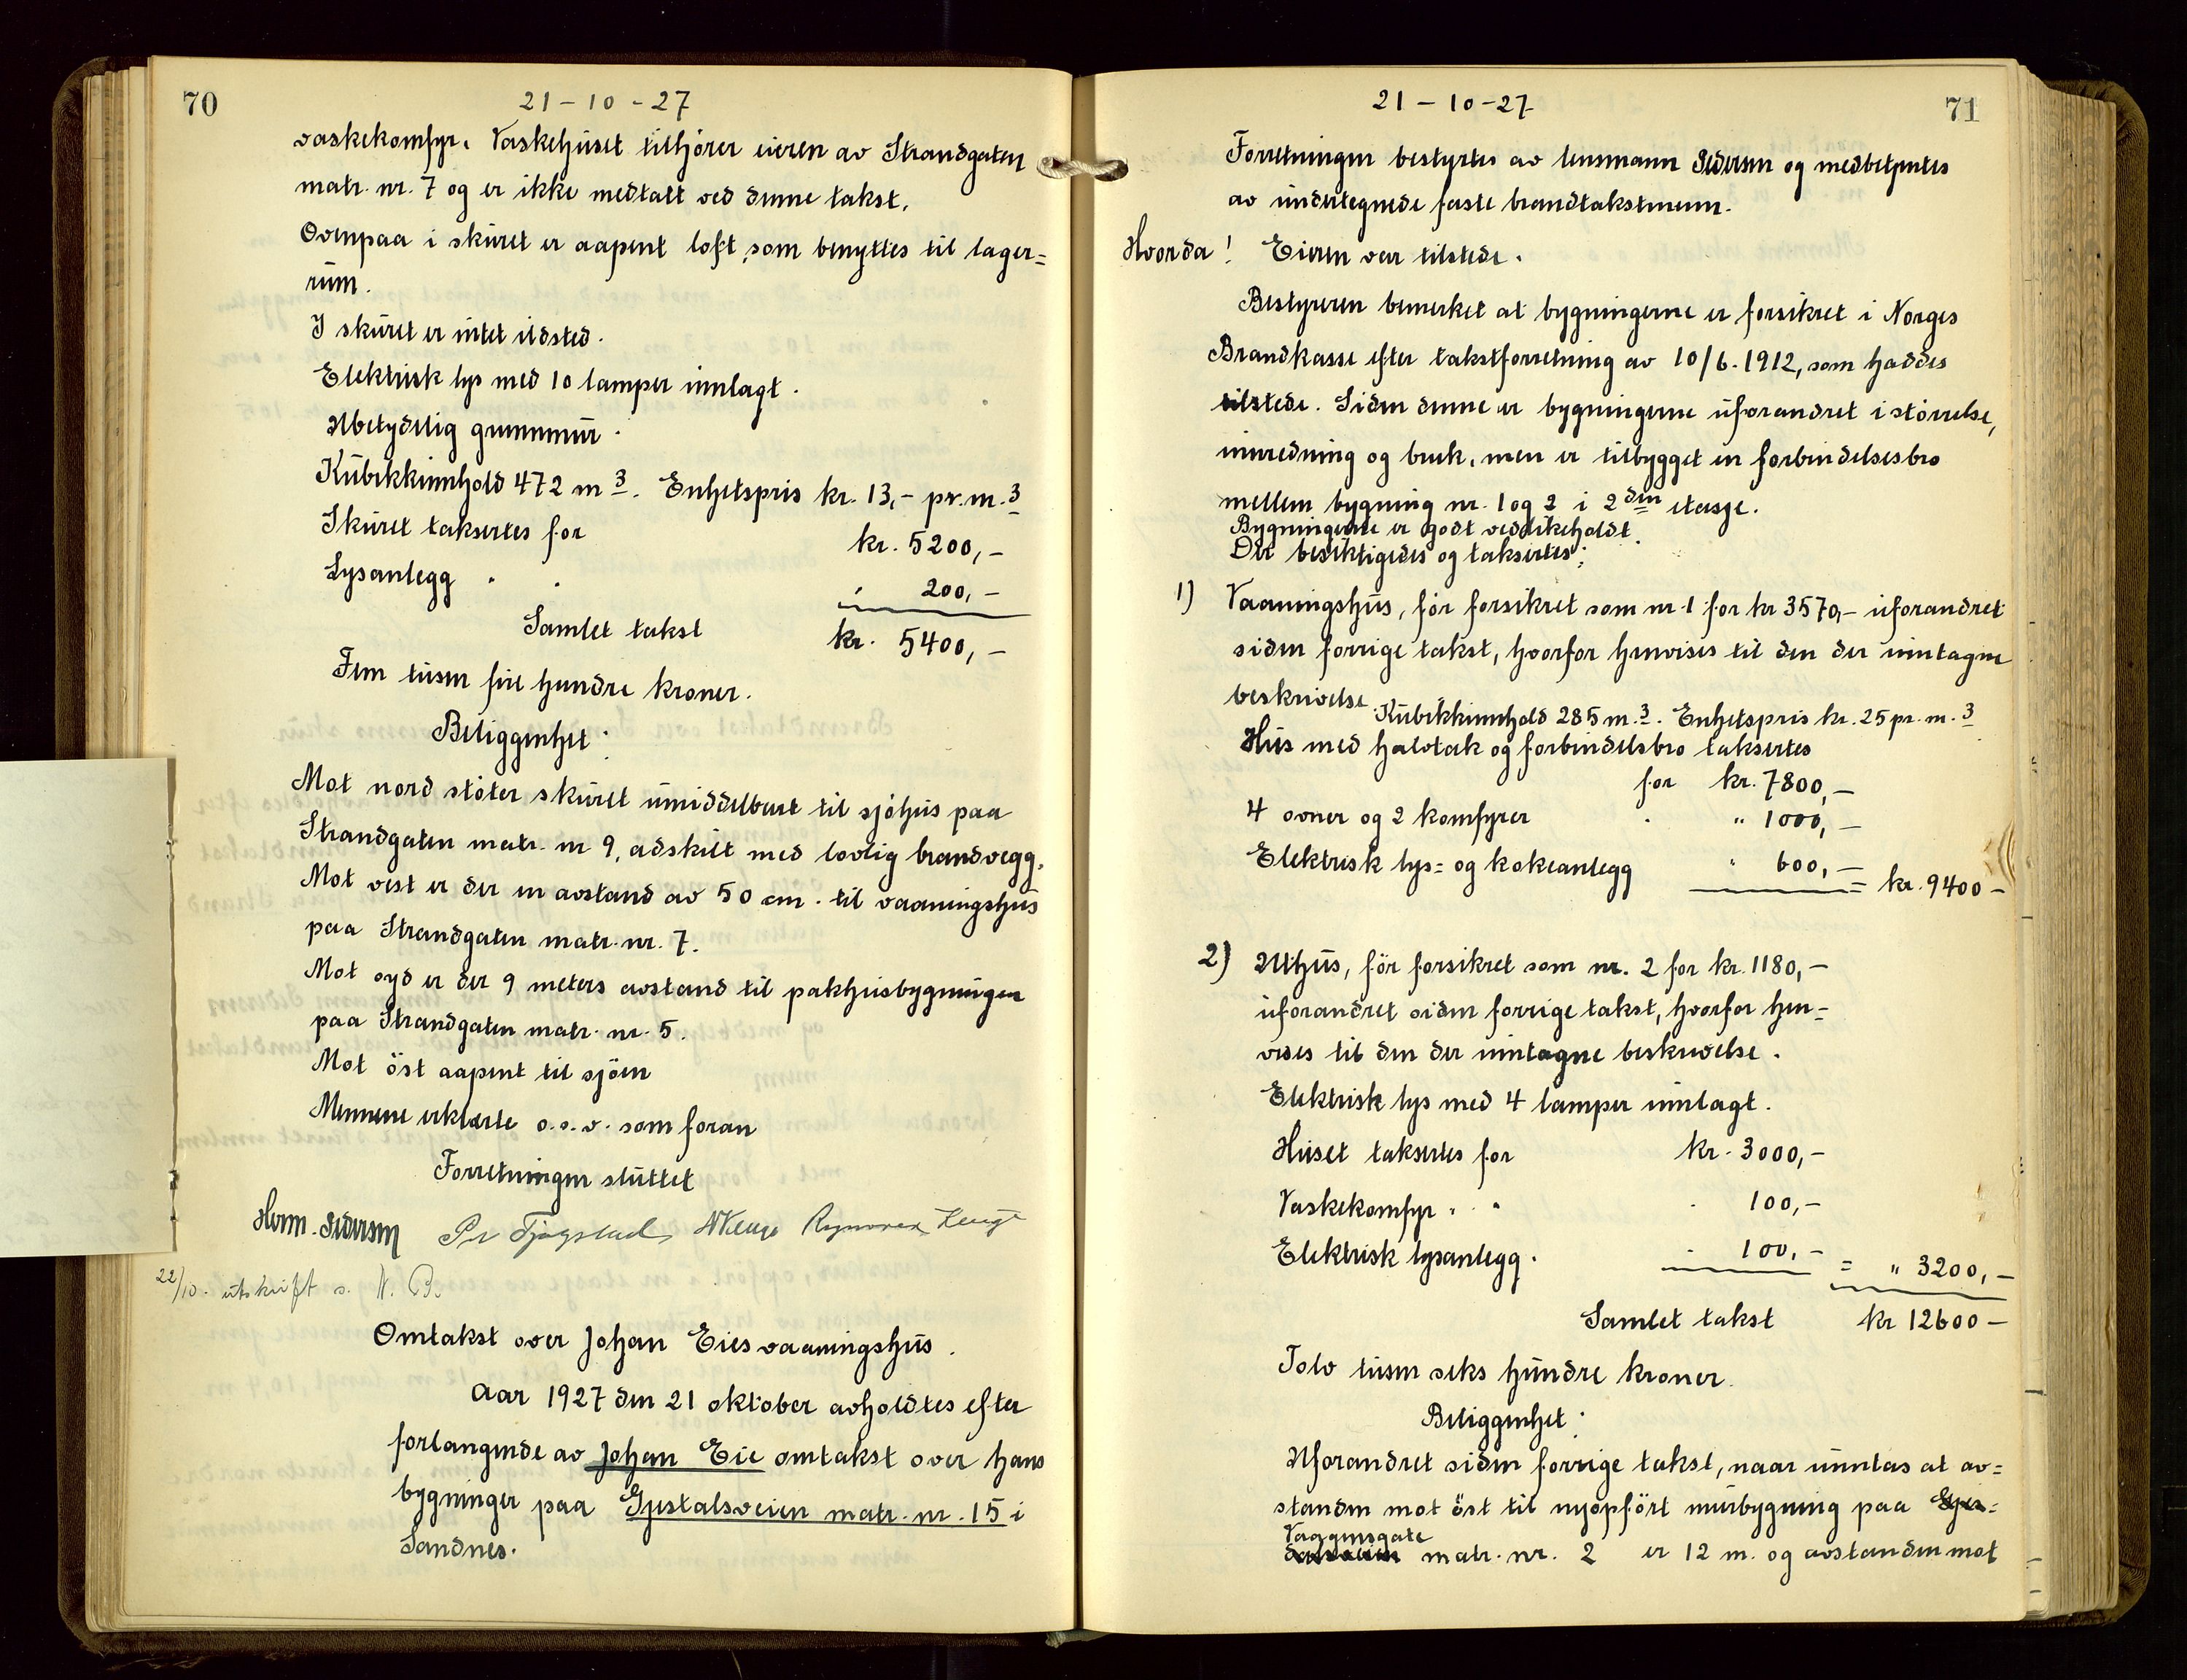 70
21-10-27
vaskekomfyr. Vaskehuset tilhører eieren av Strandgaten
matr. nr. 7 og er ikke medtatt ved denne takst.
Ovenpaa i skuret er aapent loft som benyttes til lager=
rum.
I skuret er intet ildsted.
Elektrisk lys med 10 lamper innlagt.
Ubetydelig grunnmur.
Kubikkinnhold 472 m3. Enhetspris kr. 13,- pr. m.3
Skuret taksertes for kr. 5200,-
Lysanlegg " " " 200,-
Samlet takst kr. 5400,-
Fem tusen fire hundre kroner.
Beliggenhet:
Mot nord støter skuret umiddelbart til sjøhus paa
Strandgaten matr. nr 9, adskilt med lovlig brandvegg.
Mot vest er der en avstand av 50 cm. til vaaningshus
paa Strandgaten matr. nr. 7.
Mot syd er der 9 meters avstand til pakhusbygningen
paa Strandgaten matr. nr. 5.
Mot öst aapent til sjöen
Mennene erklærte o.s.v. som foran
Forretningen sluttet
Herm. Pedersen Pr Tjågstad
22/10. utskrift s. N. B.
Omtakst over Johan Eies vaaningshus.
Aar 1927 den 21 oktober avholdtes efter
forlangende av Johan Eie omtakst over hans
bygninger paa Gjestalsveien matr. nr. 15 i
Sandnes.
71
21-10-27
Forretningen bestyrtes av lensmann Pedersen og medbetjentes
av undertegnede faste brandtakstmenn.
Hvorda! Eieren var tilstede.
Bestyreren bemerket at bygningerne er forsikret i Norges
Brandkasse efter takstforretning av 10/6. 1912, som haddes
tilstede. Siden denne er bygningerne uforandret i störrelse,
innredning og bruk, men er tilbygget en forbindelsesbro
mellem bygning nr. 1 og 2 i 2den etasje.
Bygningerne er godt vedlikeholdt.
Der besiktigedes og taksertes:
1) Vaaningshus, før forsikret som nr. 1 for kr 3570,- uforandret
siden forrige takst, hvorfor henvises til den der inntagne
beskrivelse. Kubikkinnhold 285 m.3. Enhetspris kr. 25 pr. m.3
Hus med halvtak og forbindelsbro taksertes
for kr. 7800,-
4 ovner og 2 komfyrer " " 1000,-
Elektrisk lys= og kokeanlegg " 600,- = kr. 9400-
2) Uthus, för forsikret som nr. 2 for kr. 1180,-
uforandret siden forrige takst, hvorfor hen=
vises til den der inntagne beskrivelse.
Elektrisk lys med 4 lamper innlagt.
Huset taksertes for kr. 3000,-
Vaskekomfyr " " " 100,-
Elektrisk lysanlegg. " 100,- = " 3200,-
Samlet takst kr 12600-
Tolv tusen seks hundre kroner.
Beliggenhet:
Uforandret siden forrige takst, naar unntas at av=
standen mot öst til nyopfört murbygning paa Gjes=
Vaagensgate
dalsveien matr. nr. 2 er 12 m. og avstanden mot